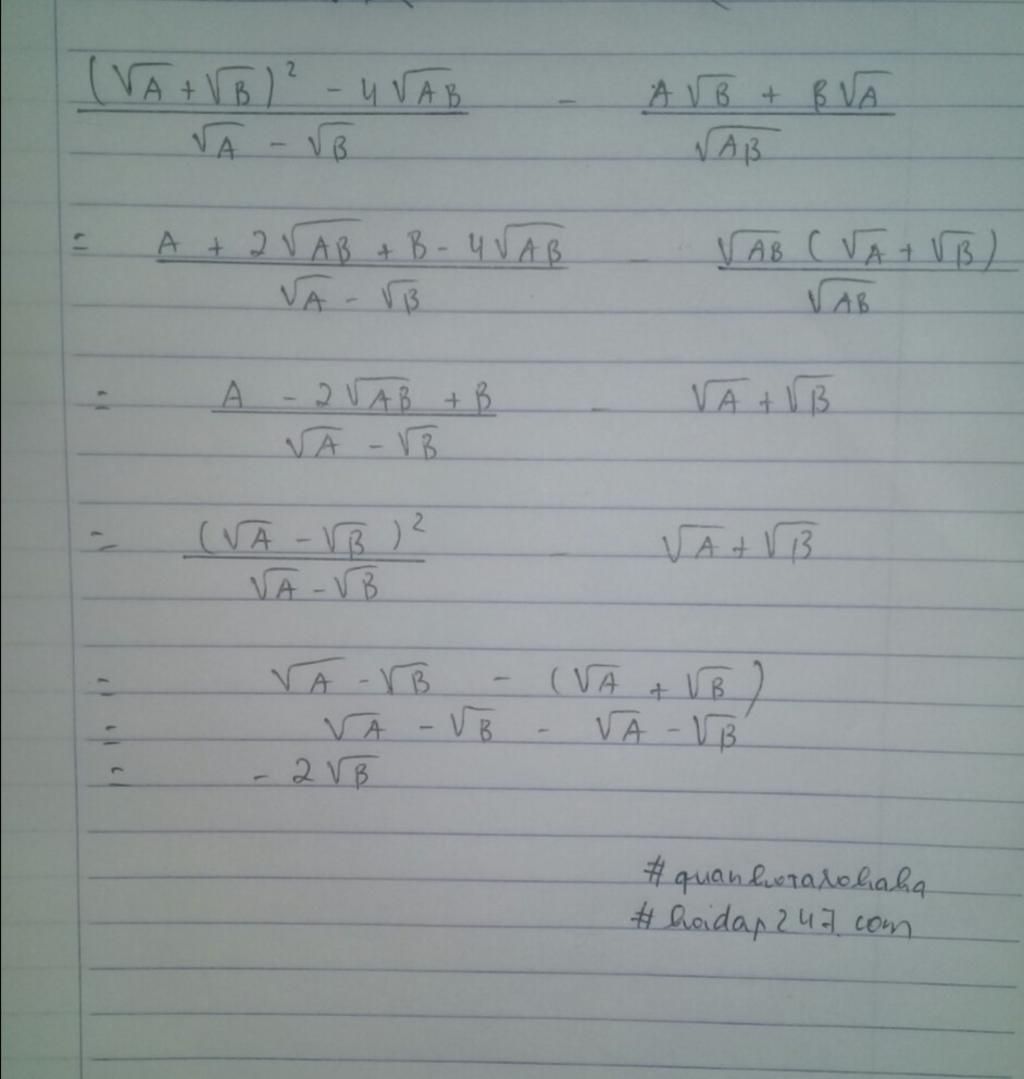 (√A + √B)² - 4√AB / √A - √B - A√B + B√A / √AB
= A + 2√AB + B - 4√AB / √A - √B - √AB (√A + √B) / √AB
= A - 2√AB + B / √A - √B - √A + √B
= (√A - √B)² / √A - √B - √A + √B
= √A - √B - (√A + √B)
= √A - √B - √A - √B
= - 2√B
#hoidap247.com